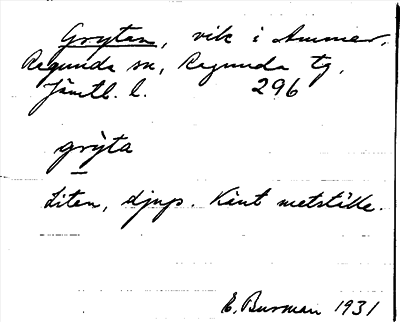 Grytan, vik i Ammer,
Ragunda sn, Ragunda tg,
Jämtl. l. 296
grỳta
Liten, djup. Känt metställe.
E. Burman 1931